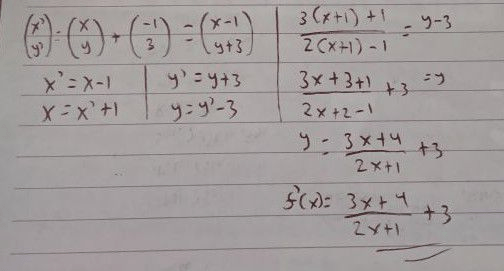 (x' y') = (x y) + (-1 3) = (x-1 y+3)
x' = x-1 | y' = y+3
x = x'+1 | y = y'-3
3(x+1)+1 / 2(x+1)-1 = y-3
3x+3+1 / 2x+2-1 + 3 = y
y = 3x+4 / 2x+1 + 3
f'(x) = 3x+4 / 2x+1 + 3